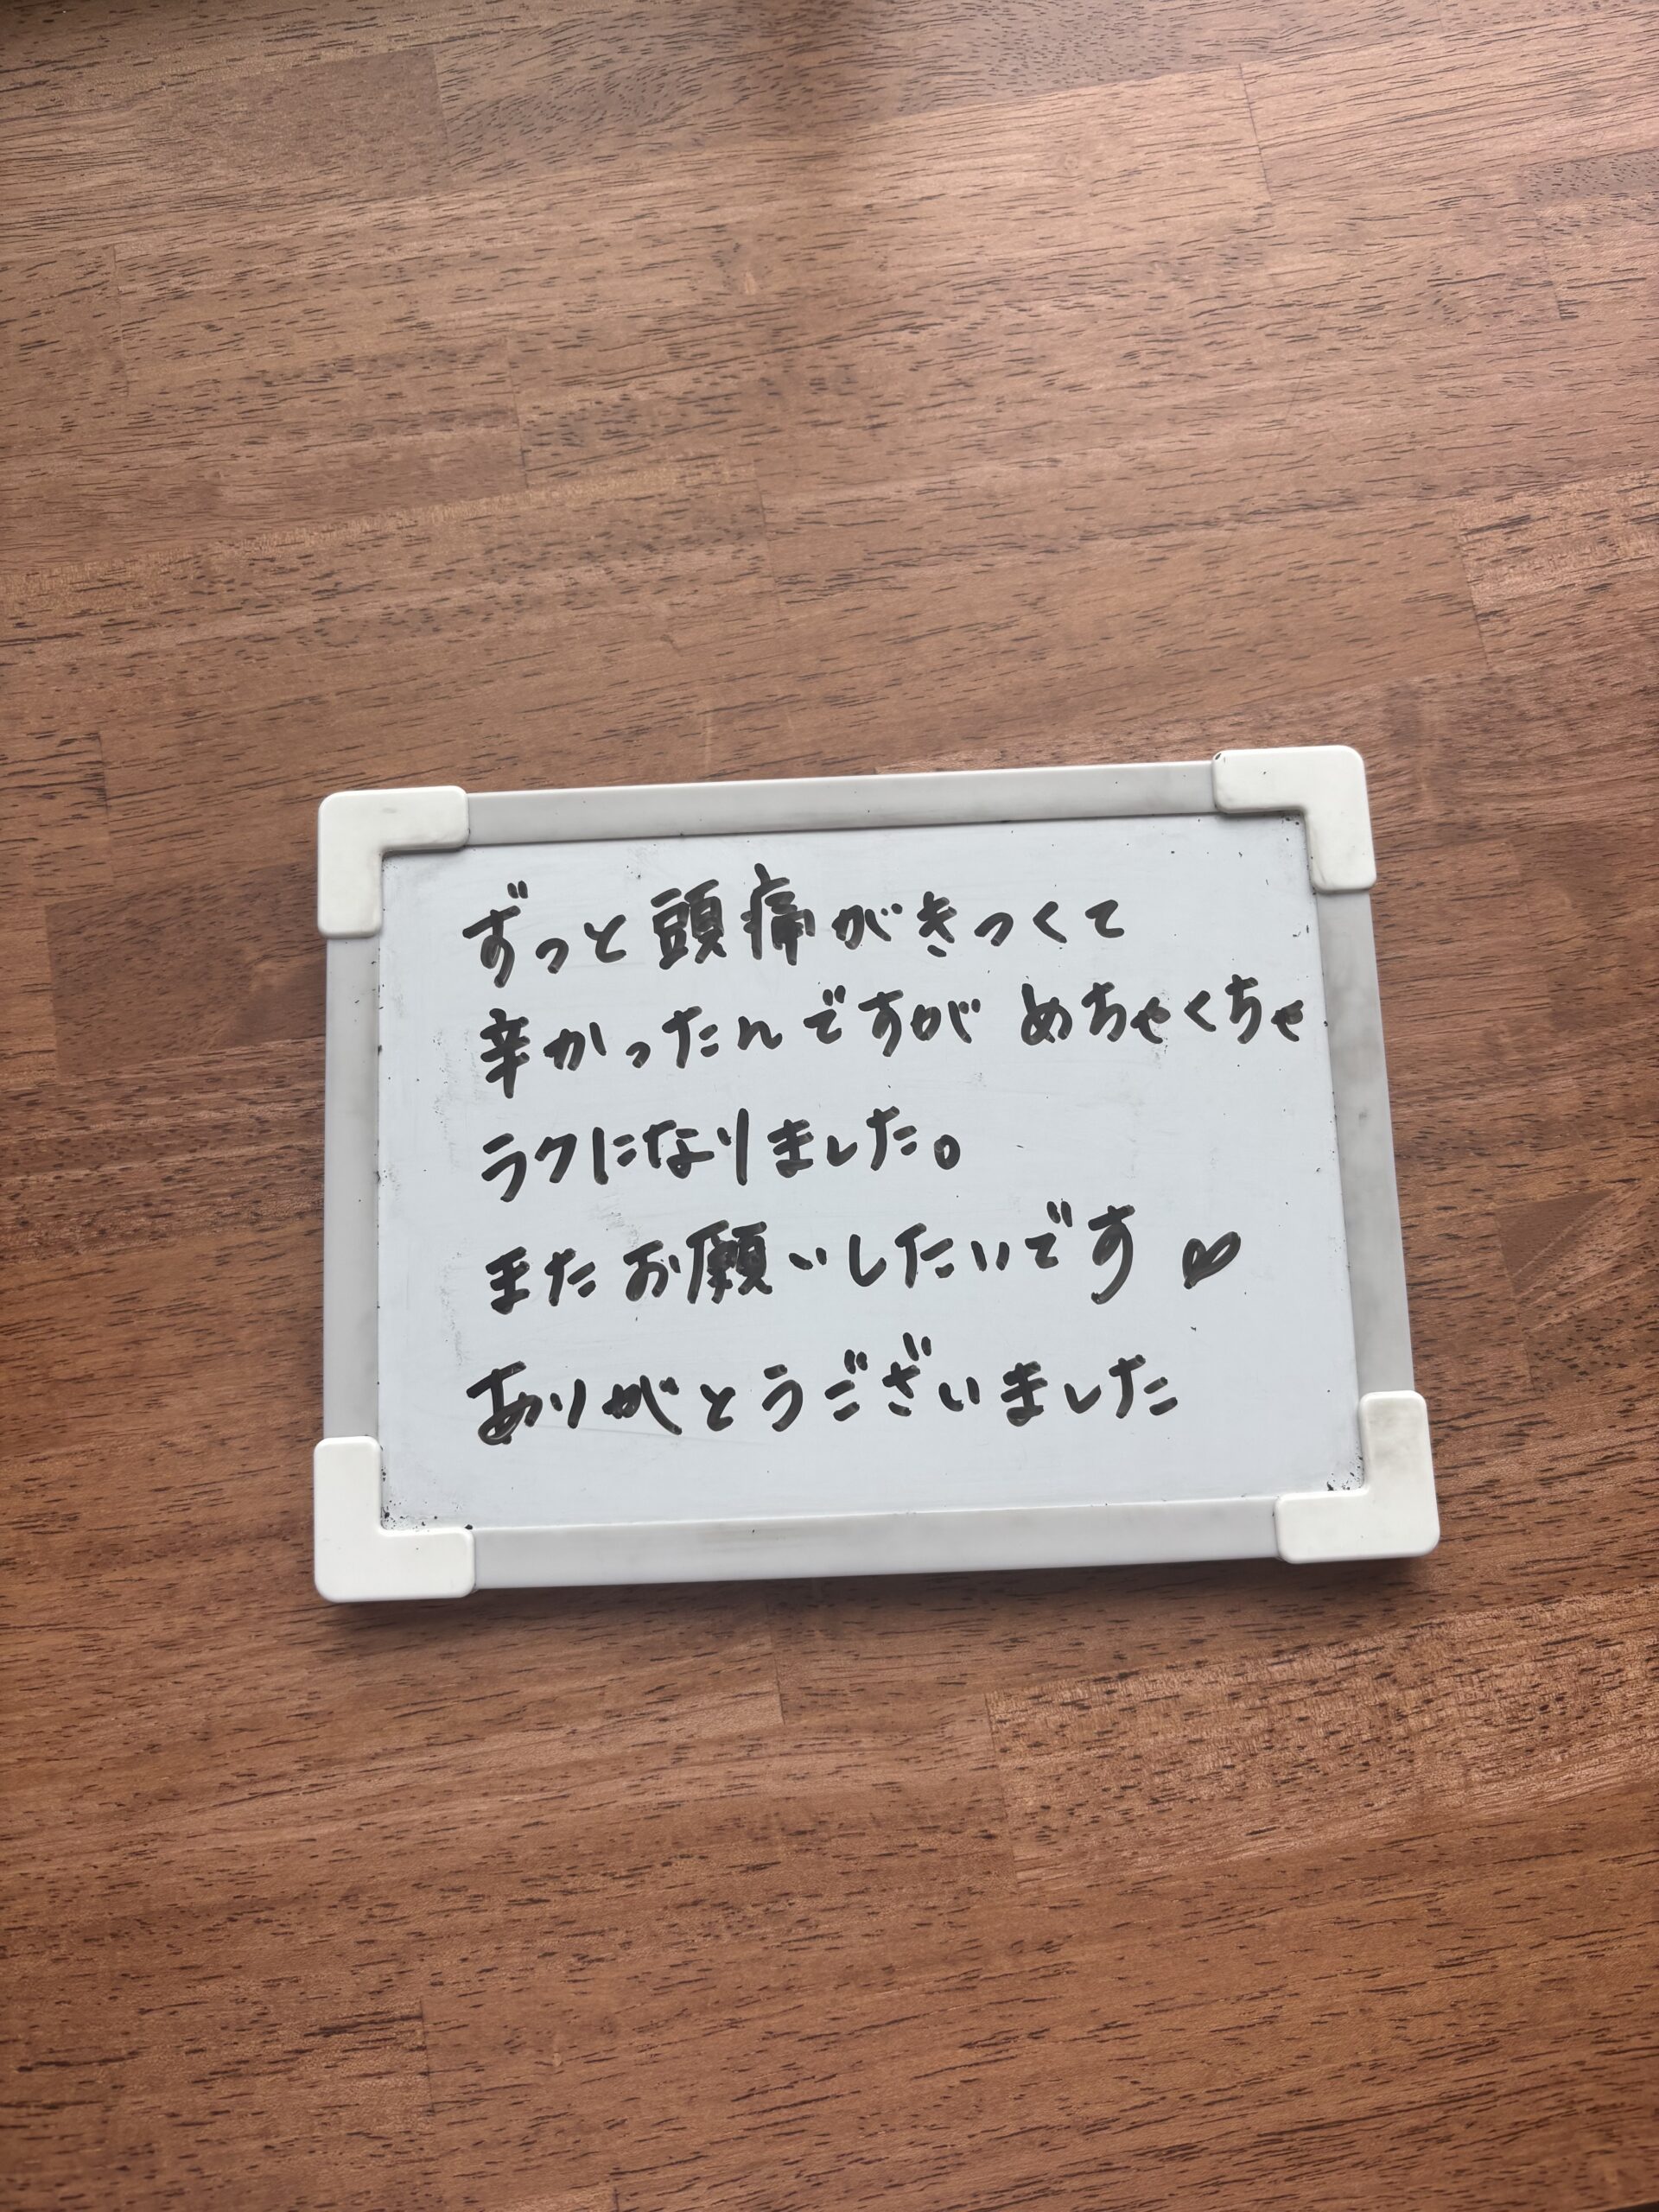 ずっと頭痛がきつくて
辛かったんですが めちゃくちゃ
ラクになりました。
またお願いしたいです♡
ありがとうございました